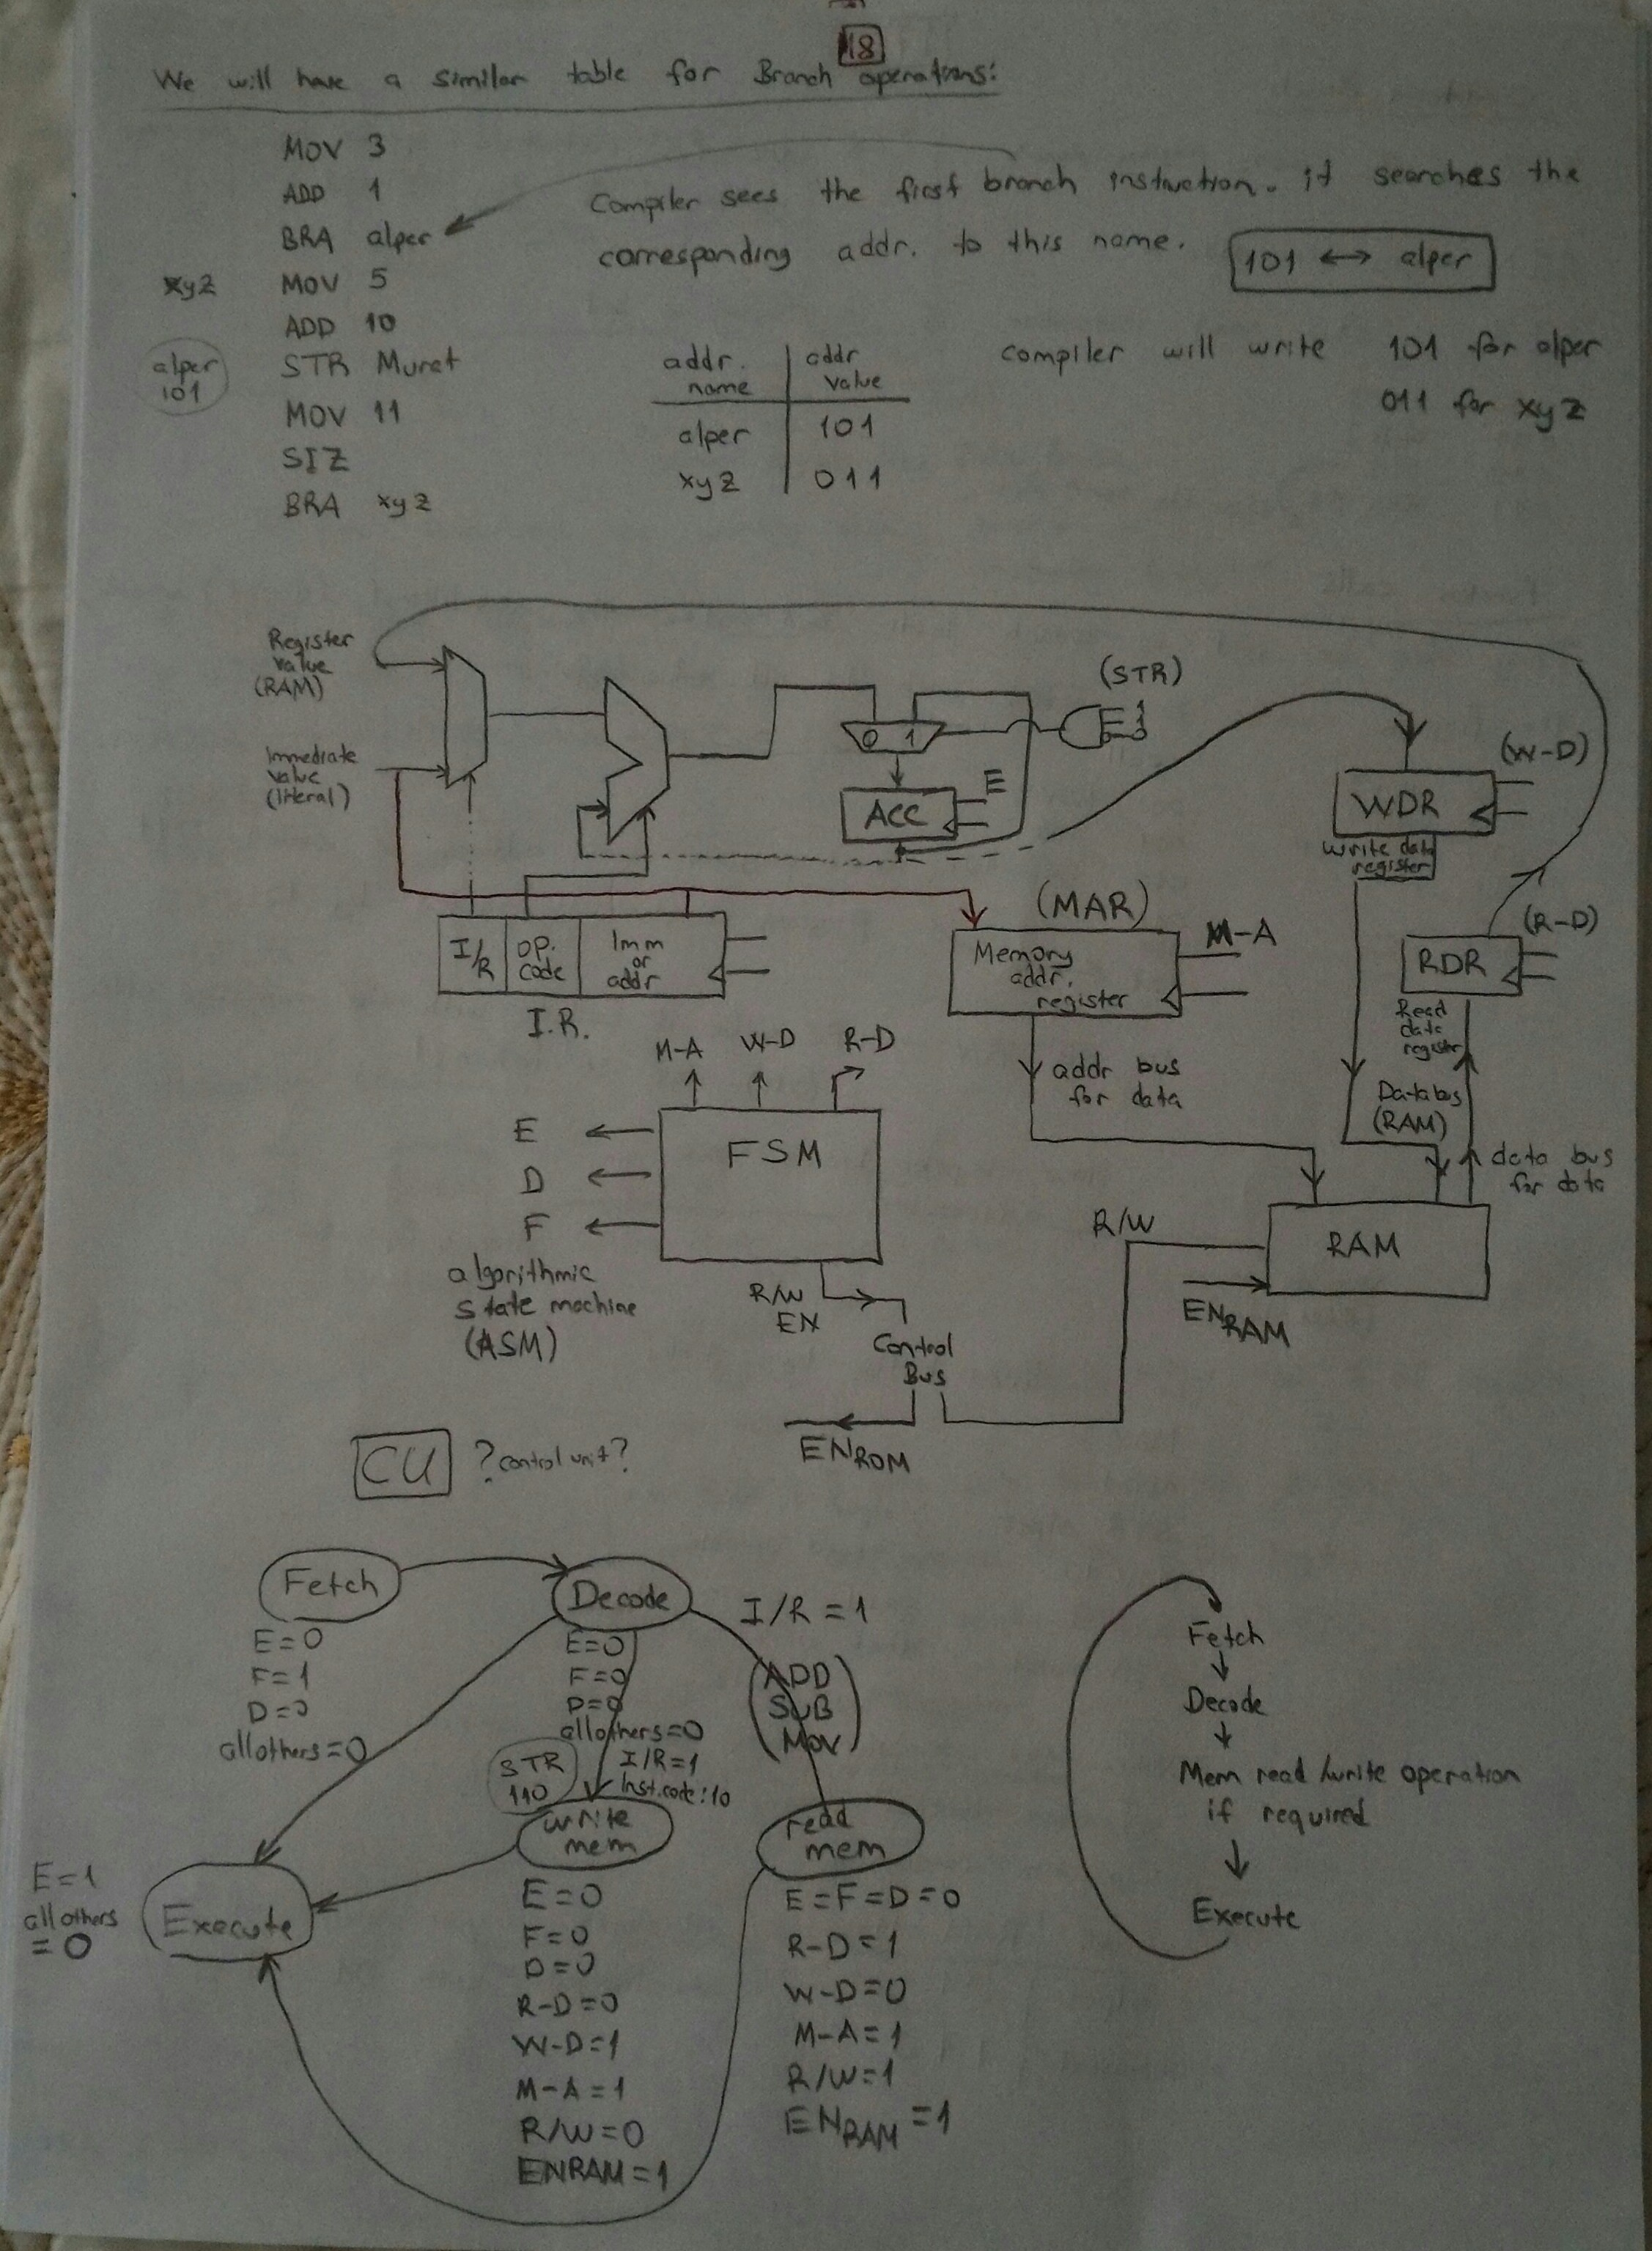 18
We will have a similar table for Branch operations:
MOV 3
ADD 1
BRA alper
xyz MOV 5
ADD 10
alper
101
STR Murat
MOV 11
SIZ
BRA xyz
Compiler sees the first branch instruction. it searches the
corresponding addr. to this name.
101 ↔ alper
addr. name | addr value
alper | 101
xyz | 011
compiler will write 101 for alper
011 for xyz
Register
value
(RAM)
Immediate
value
(literal)
(STR)
0 1
1
1
0
E
ACC
(W-D)
WDR
write data
register
(MAR)
Memory
addr.
register
M-A
(R-D)
RDR
Read
data
register
I/R
op.
code
Imm
or
addr
I.R.
M-A W-D R-D
E
D
F
FSM
algorithmic
state machine
(ASM)
R/W
EN
Control
Bus
ENROM
addr bus
for data
Databus
(RAM)
data bus
for data
R/W
RAM
ENRAM
CU ?control unit?
Fetch
E=0
F=1
D=0
all others=0
Decode
E=0
F=0
D=0
all others=0
I/R=1
Inst.code:10
STR
110
I/R = 1
(ADD
SUB
MOV)
write
mem
E=0
F=0
D=0
R-D=0
W-D=1
M-A=1
R/W=0
ENRAM=1
read
mem
E=F=D=0
R-D=1
W-D=0
M-A=1
R/W=1
ENRAM=1
E=1
all others
=0
Execute
Fetch
↓
Decode
↓
Mem read/write operation
if required
↓
Execute